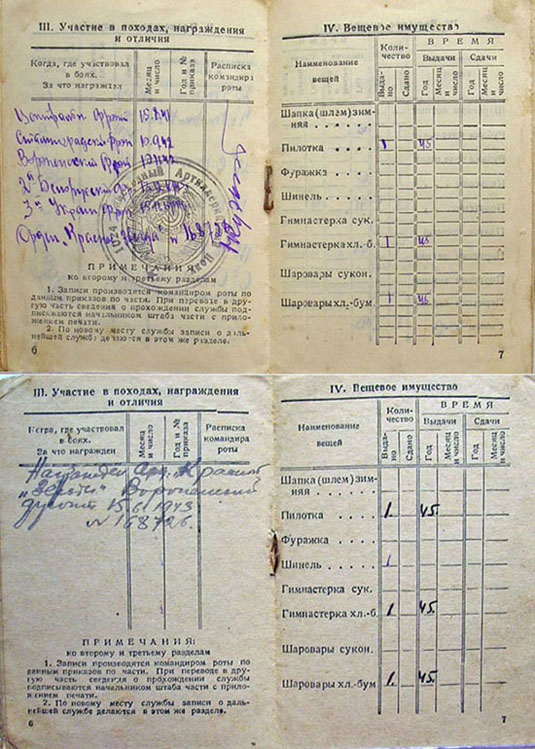 III. Участие в походах, награждения
и отличия
Когда, где участвовал
в боях.
За что награжден
Месяц
и число
Год и №
приказа
Расписка
командира
роты
фронт 15.8.42
Сталинградский фрон
Воронежский фрон
2й Белорусский
3й Украин. фрон
Орден "Красная Звезда" №
ПРИМЕЧАНИЯ:
ко второму и третьему разделам
1. Записи производятся командиром роты по
данным приказов по части. При переводе в дру-
гую часть сведения о прохождении службы под-
писываются начальником штаба части с прило-
жением печати.
2. По новому месту службы записи о даль-
нейшей службе делаются в этом же разделе.
6
IV. Вещевое имущество
Наименование
вещей
Коли-
чество
ВРЕМЯ
Выда-
но
Сдано
Выдачи
Сдачи
Год
Месяц
и число
Год
Месяц
и число
Шапка (шлем) зим-
няя
Пилотка 1 45
Фуражка
Шинель
Гимнастерка сук.
Гимнастерка хл.-б. 1 45
Шаровары сукон.
Шаровары хл.-бум. 1 45
7
III. Участие в походах, награждения
и отличия
Когда, где участвовал
в боях.
За что награжден
Месяц
и число
Год и №
приказа
Расписка
командира
роты
Награжден Орд. "Красной
Звезды" Воронежский
фронт 15.6.1943
N 168726.
ПРИМЕЧАНИЯ:
ко второму и третьему разделам
1. Записи производятся командиром роты по
данным приказов по части. При переводе в дру-
гую часть сведения о прохождении службы
подписываются начальником штаба части с прило-
жением печати.
2. По новому месту службы записи о даль-
нейшей службе делаются в этом же разделе.
6
IV. Вещевое имущество
Наименование
вещей
Коли-
чество
ВРЕМЯ
Выда-
но
Сдано
Выдачи
Сдачи
Год
Месяц
и число
Год
Месяц
и число
Шапка (шлем) зим-
няя
Пилотка 1. 45.
Фуражка
Шинель 1
Гимнастерка сук.
Гимнастерка хл.-б. 1. 45.
Шаровары сукон.
Шаровары хл.-бум 1. 45.
7